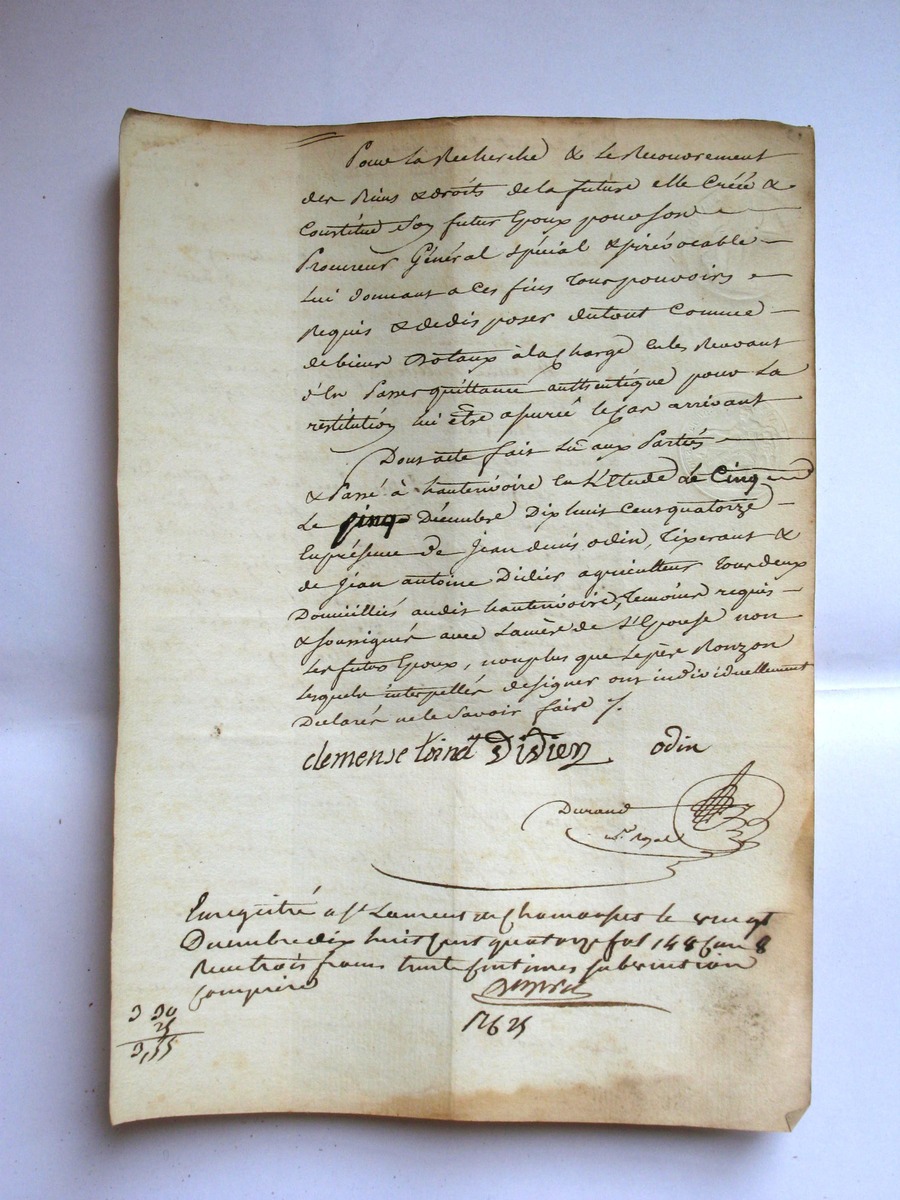 Pour la Recherche & le Recouvrement
des Biens & droits de la future elle Créé &
Constitue son futur Epoux pour son
Procureur Général Spécial & irrévocable
Lui donnant a Ces fins Tous pouvoirs
Requis & de disposer du tout Comme
de biens Dotaux à la Charge en les Recevant
d'en Passer quittance authentique pour La
restitution lui être assurée le Cas arrivant
Dont acte fait Lu aux Parties
& Passé à hauterivoire En L'Etude Le Cinq
Le Cinq Décembre Dix huit Cent quatorze
En présence de Jean denis odin, Tixerant &
de Jean antoine Didier agriculteur Tous deux
Domiciliés audit hauterivoire, Temoins requis
& soussignés avec La mère de L'Epouse non
Les futurs Epoux, non plus que Le père Ronzon
Lesquels interpellés de signer ont individuellement
Déclarés ne le Savoir faire /.
clemense Didier odin
Durand
nre Royal
Enregistré a st Laurent de Chamousset le vingt
Decembre dix huit Cent quatorze fol 148 Case 8
Reçu trois francs trente Centimes subvention
Comprise
3 30
25
3,55